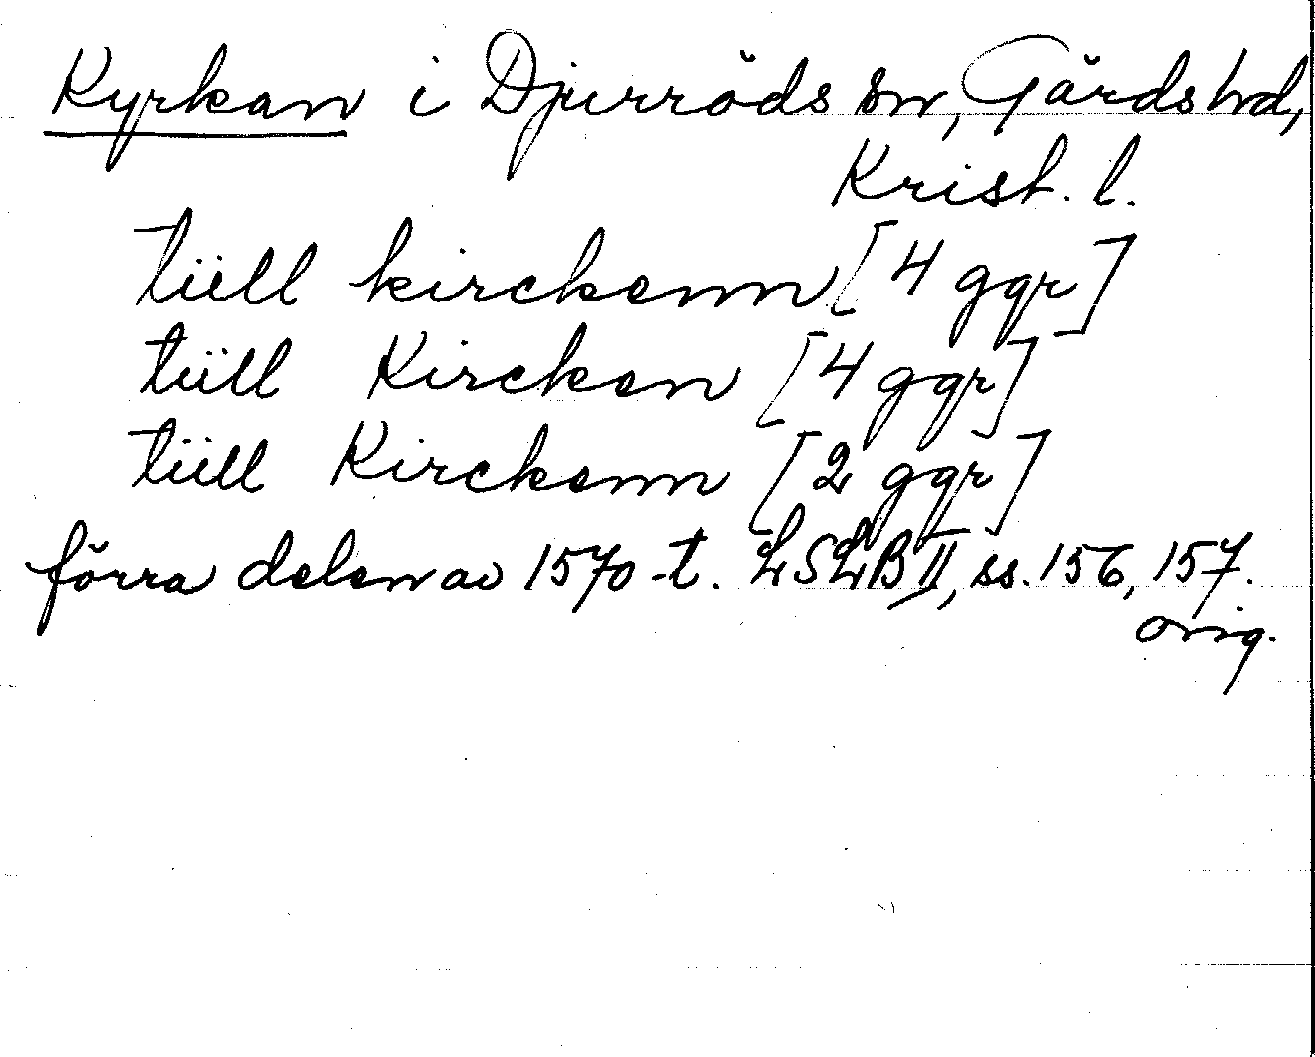 Kyrkan i Djurröds sn, Gärds hd,
Krist. l.
tiill kirckenn [4 ggr]
tiill Kircken [4 ggr]
tiill Kirckenn [2 ggr]
förra delen av 1570-t. LSLB II, ss. 156, 157.
orig.